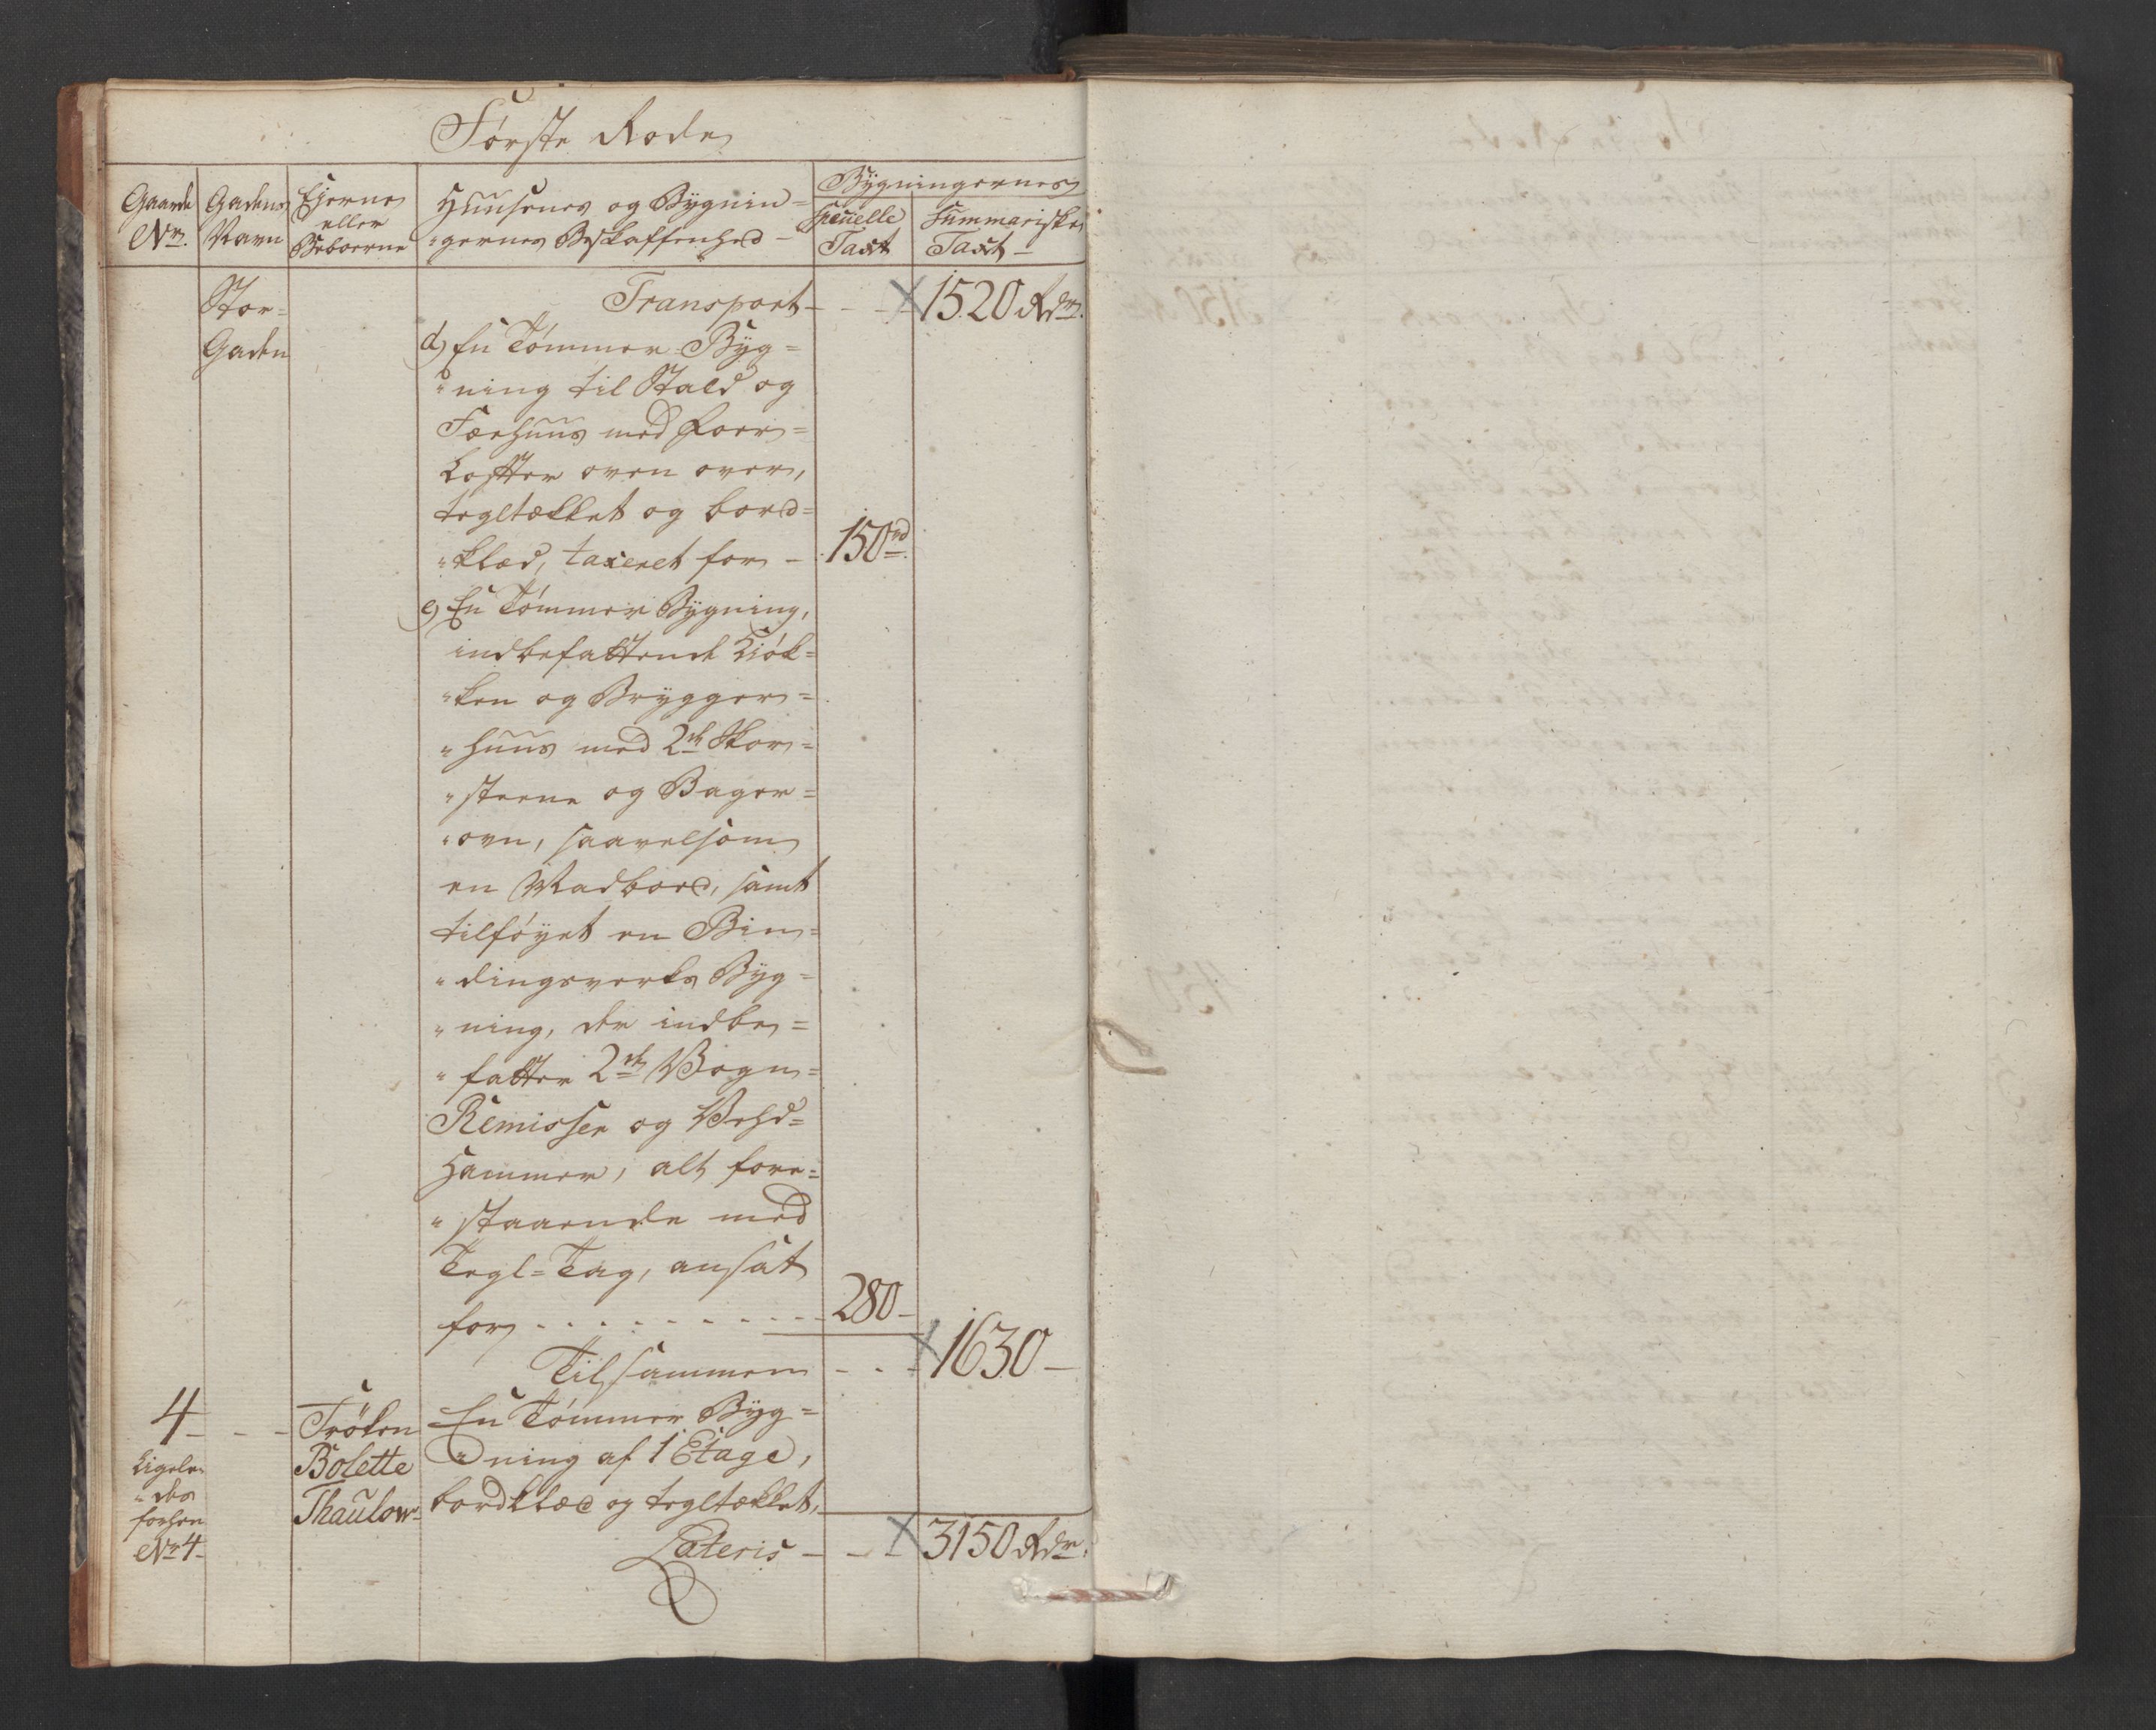 Første Rode
Gaarde No.
Gadens Navn
Ejerne eller Beboerne
Huusenes og Bygnin=
"gernes Beskaffenhed –
Bygningernes
specielle Taxt
summariske Taxt –
Stor=
Gaden
Transport – – – 1520 Rdr.
d) En Tømmer Byg=
"ning til Stald og
Fæehuus med Foer=
Lofter oven over,
tegltækket og bord=
"klæd, taxeret for – 150 rd.
e) En Tømmer Bygning,
indbefattende Kiøk=
"ken og Brygger=
"huus med 2de Skor=
"steene og Bager=
"ovn, saavelsom
en Madbod, samt
tilføyet en Bin=
"dingsverks Byg=
"ning, der indbe=
"fatter 2de Vogn=
Remisser og Vehd=
Hammer, alt fore=
"staaende med
Tegl=Tag, ansat
for . . . . . . . . . 280 –
Tilsammen – . – 1630 –
4 – – – Frøken En Tømmer Byg=
Bolette "ning af 1 Etage,
Thaulow – bordklæd og tegltækket,
Ligele=
"des
forhen
No 4 –
Lateris – – – 3150 Rdr.